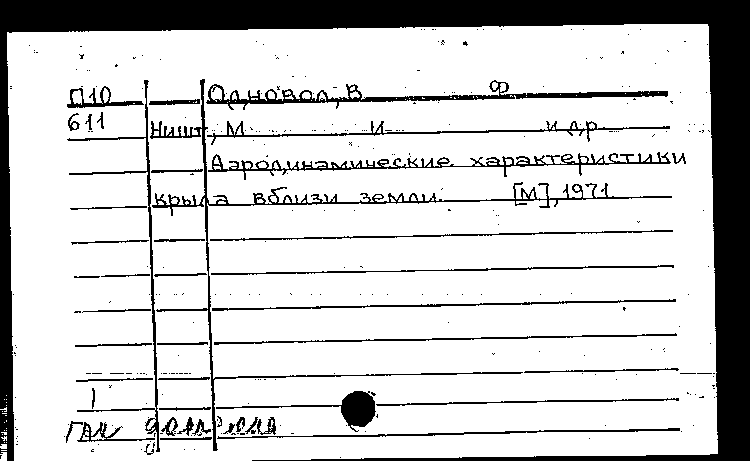 П10 Одновол, В Ф
611 Ништ, М И и др.
Аэродинамические характеристики
крыла вблизи земли. [М], 1971
1